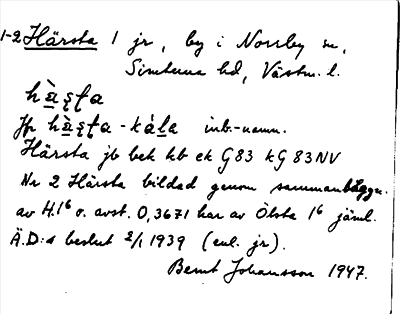 1-2 Härsta 1 jr, by i Norrby sn,
Simtuna hd, Västm. l.
hà̱ʂʈa
Jfr hà̱ʂʈa-ká̱la inb.-namn.
Härsta jb bek kb ek G83 kG 83NV
Nr 2 Härsta bildad genom sammanbyggn.
av H.1⁶ o. avst. 0,3671 har av Ölsta 1⁶ jäml.
Ä.D:s beslut 2/1 1939 (enl. jr).
Bernt Johansson 1947.